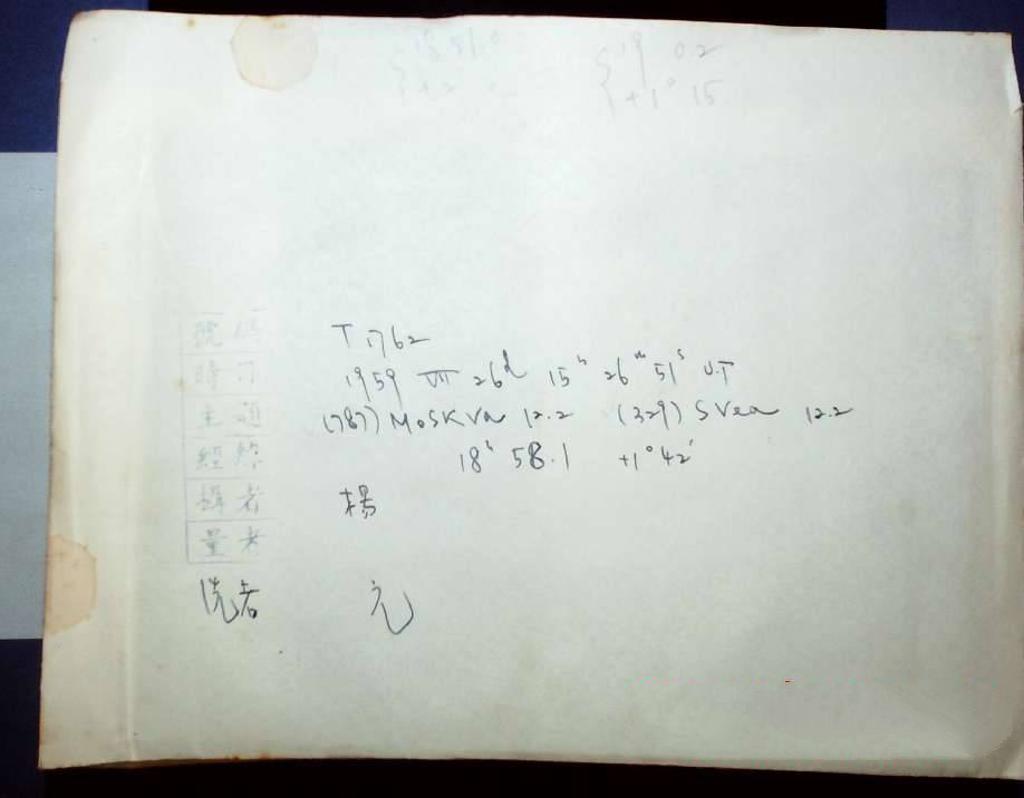 19 02
+1° 15
號碼 T 1762
時刀 1959 VII 26d 15h 26m 51s U.T
主題 (787) Moskva 12.2 (329) Svea 12.2
經緯 18h 58.1 +1° 42'
攝者 楊
量者
洗者 元